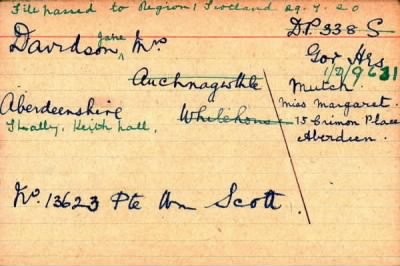 File passed to Region 1 Scotland 29.7.20
D.P. 338 S
Davidson, Jane Mrs
Gor Hrs
1/D/9631
Auchnagorth
Mutch
Miss Margaret.
Aberdeenshire
Whitehouse
15 Crimon Place
Keith hall,
Aberdeen.
No. 13623 Pte Wm Scott.